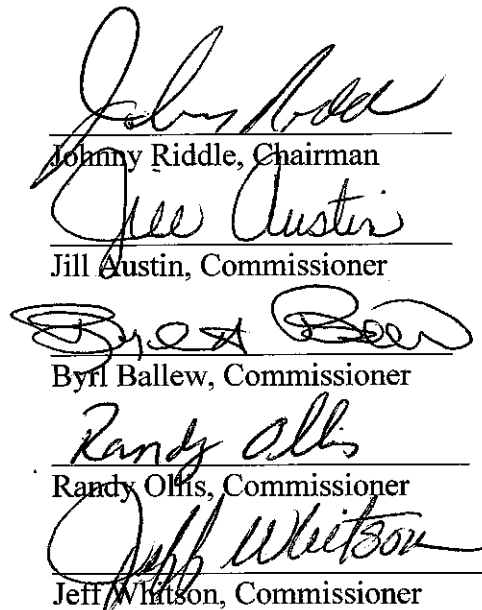 Johnny Riddle
Johnny Riddle, Chairman
Jill Austin
Jill Austin, Commissioner
Byrl Ballew, Commissioner
Randy Ollis
Randy Ollis, Commissioner
Jeff Whitson
Jeff Whitson, Commissioner